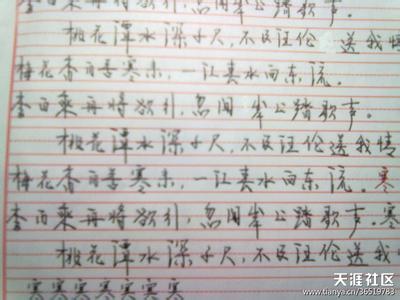 李白乘再将欲引,忽闻岸公踏歌声。
桃花潭水深千尺,不及汪伦送我情
梅花香自苦寒来,一江春水向东流。
李白乘再将欲引,忽闻岸公踏歌声。
桃花潭水深千尺,不及汪伦送我情
梅花香自苦寒来,一江春水向东流。寒
李白乘再将欲引,忽闻岸公踏歌声。寒
桃花潭水深千尺,不及汪伦送我
寒寒寒寒寒寒寒
天涯社区
www.tianya.cn/36519783